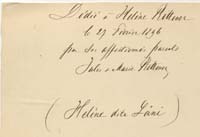 Dédié à Hélène
le 27 Février 1896
par ses affectionnés parents
Jules & Marie
(Hélène dite